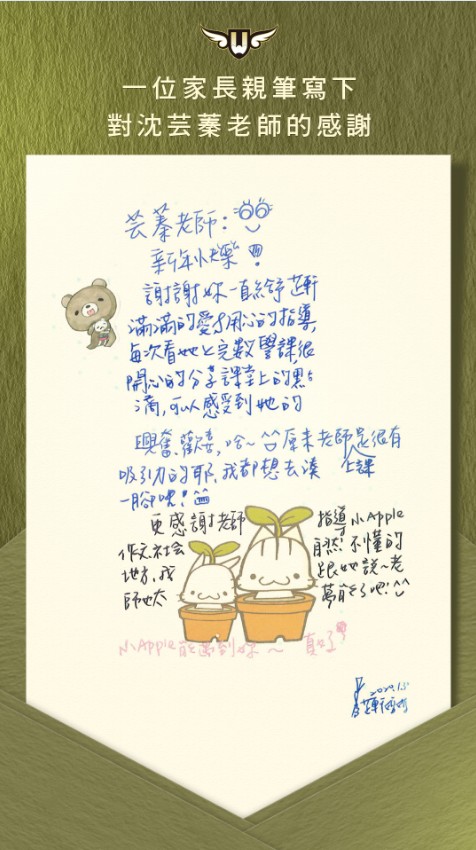 W
一位家長親筆寫下
對沈芸蓁老師的感謝
芸蓁老師：
新年快樂！
謝謝妳一直給舒芷昕
滿滿的愛與用心的指導,
每次看她上完數學課,很
開心的分享課堂上的點
滴,可以感受到她的
興奮、歡喜,哈~原來老師是很有
吸引力的耶,我都想去湊上課
一腳呢！
更感謝老師指導小Apple
作文、社會、自然！不懂的
地方,我跟她說~老
師也太萬能了吧！^^
小Apple能遇到妳~真好
2020.1.5